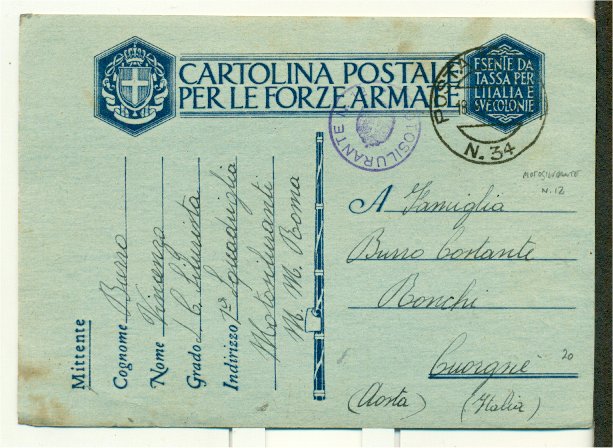 CARTOLINA POSTALE
PER LE FORZE ARMA
ESENTE DA
TASSA PER
L'ITALIA E
SVE COLONIE
POSTA
18
N. 34
MOTOSILURANTE
MOTOSILURANTE
N. 12
A Famiglia
Burro Costante
Ronchi
Cuorgnè
20
(Aosta) (Italia)
Mittente
Cognome Burro
Nome Vincenzo
Grado S. C. Silurista
Indirizzo 1ª Squadriglia
Motosiluranti
M. M. Roma